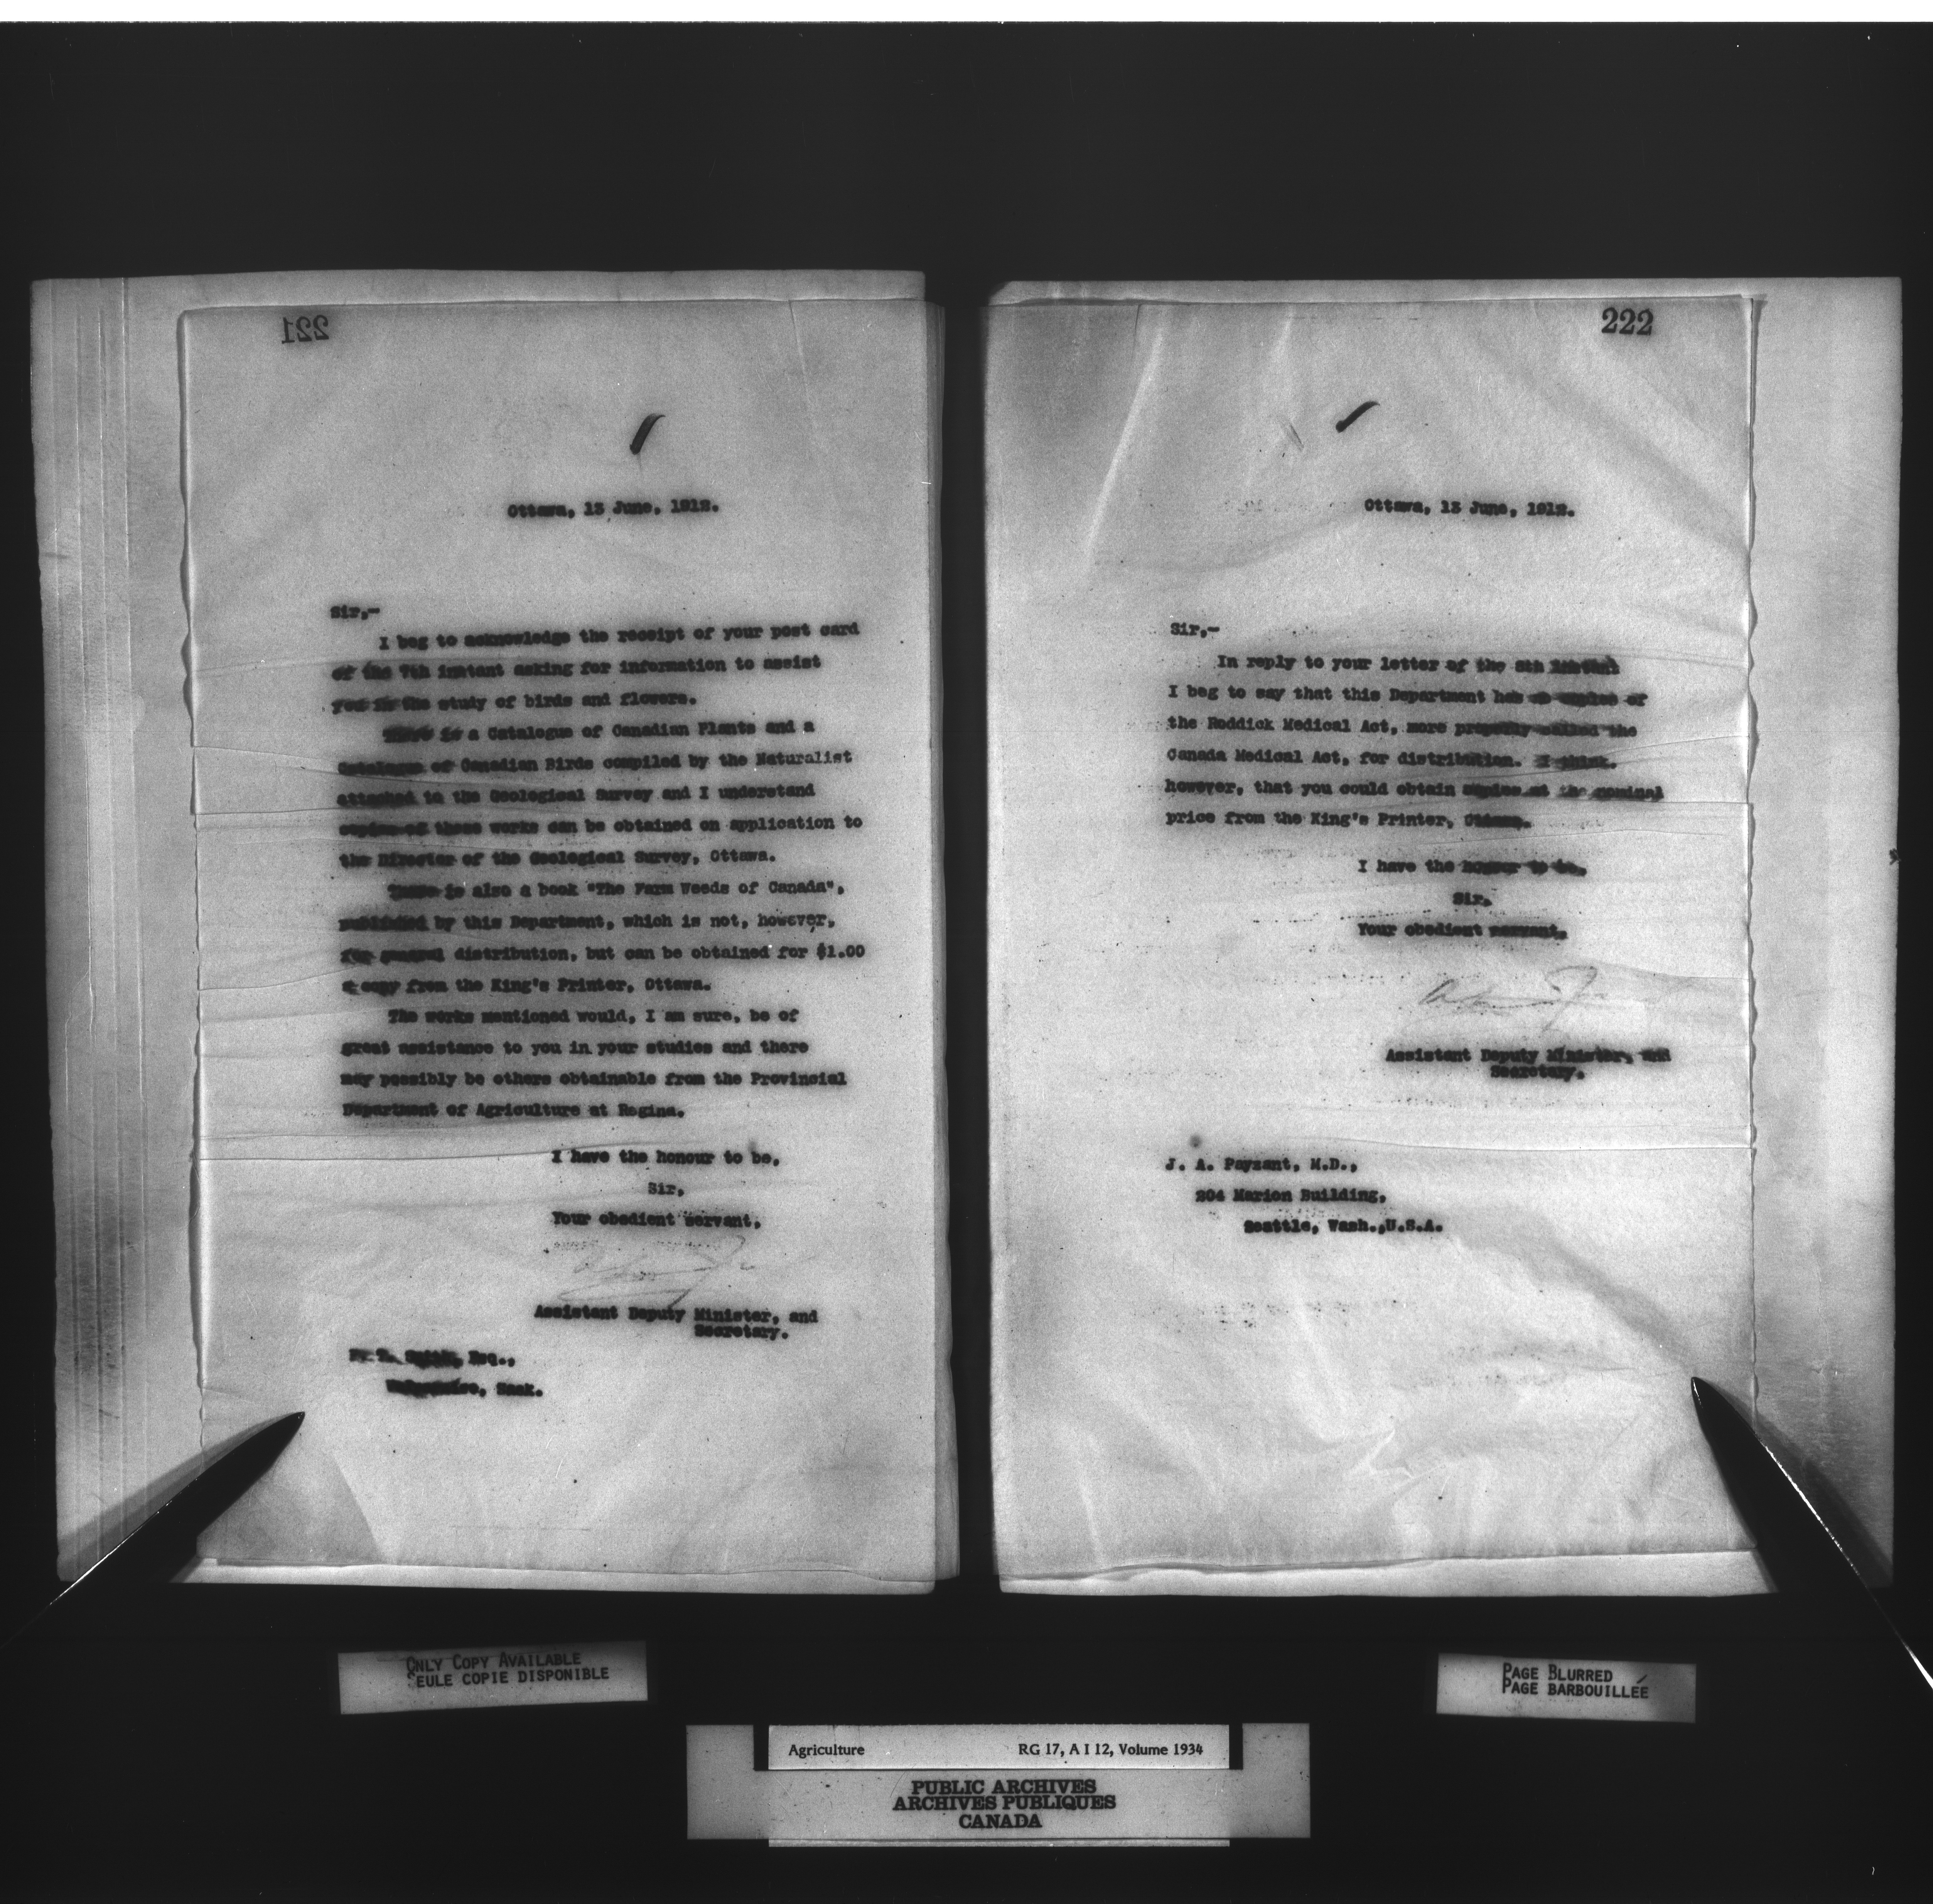 221
Ottawa, 13 June, 1912.
Sir,-
I beg to acknowledge the receipt of your post card
of the 7th instant asking for information to assist
you in the study of birds and flowers.
There is a Catalogue of Canadian Plants and a
Catalogue of Canadian Birds compiled by the Naturalist
attached to the Geological Survey and I understand
copies of these works can be obtained on application to
the Director of the Geological Survey, Ottawa.
There is also a book "The Farm Weeds of Canada",
published by this Department, which is not, however,
for general distribution, but can be obtained for $1.00
a copy from the King's Printer, Ottawa.
The works mentioned would, I am sure, be of
great assistance to you in your studies and there
may possibly be others obtainable from the Provincial
Department of Agriculture at Regina.
I have the honour to be,
Sir,
Your obedient servant,
Assistant Deputy Minister, and
Secretary.
Smith, Esq.,
Sask.
222
Ottawa, 13 June, 1912.
Sir,-
In reply to your letter of the 8th instant
I beg to say that this Department has no copies of
the Roddick Medical Act, more properly called the
Canada Medical Act, for distribution. I think,
however, that you could obtain copies at the nominal
price from the King's Printer, Ottawa.
I have the honour to be,
Sir,
Your obedient servant,
Assistant Deputy Minister, and
Secretary.
J. A. Payzant, M.D.,
204 Marion Building,
Seattle, Wash.,U.S.A.
ONLY COPY AVAILABLE
SEULE COPIE DISPONIBLE
PAGE BLURRED
PAGE BARBOUILLÉE
Agriculture RG 17, A I 12, Volume 1934
PUBLIC ARCHIVES
ARCHIVES PUBLIQUES
CANADA